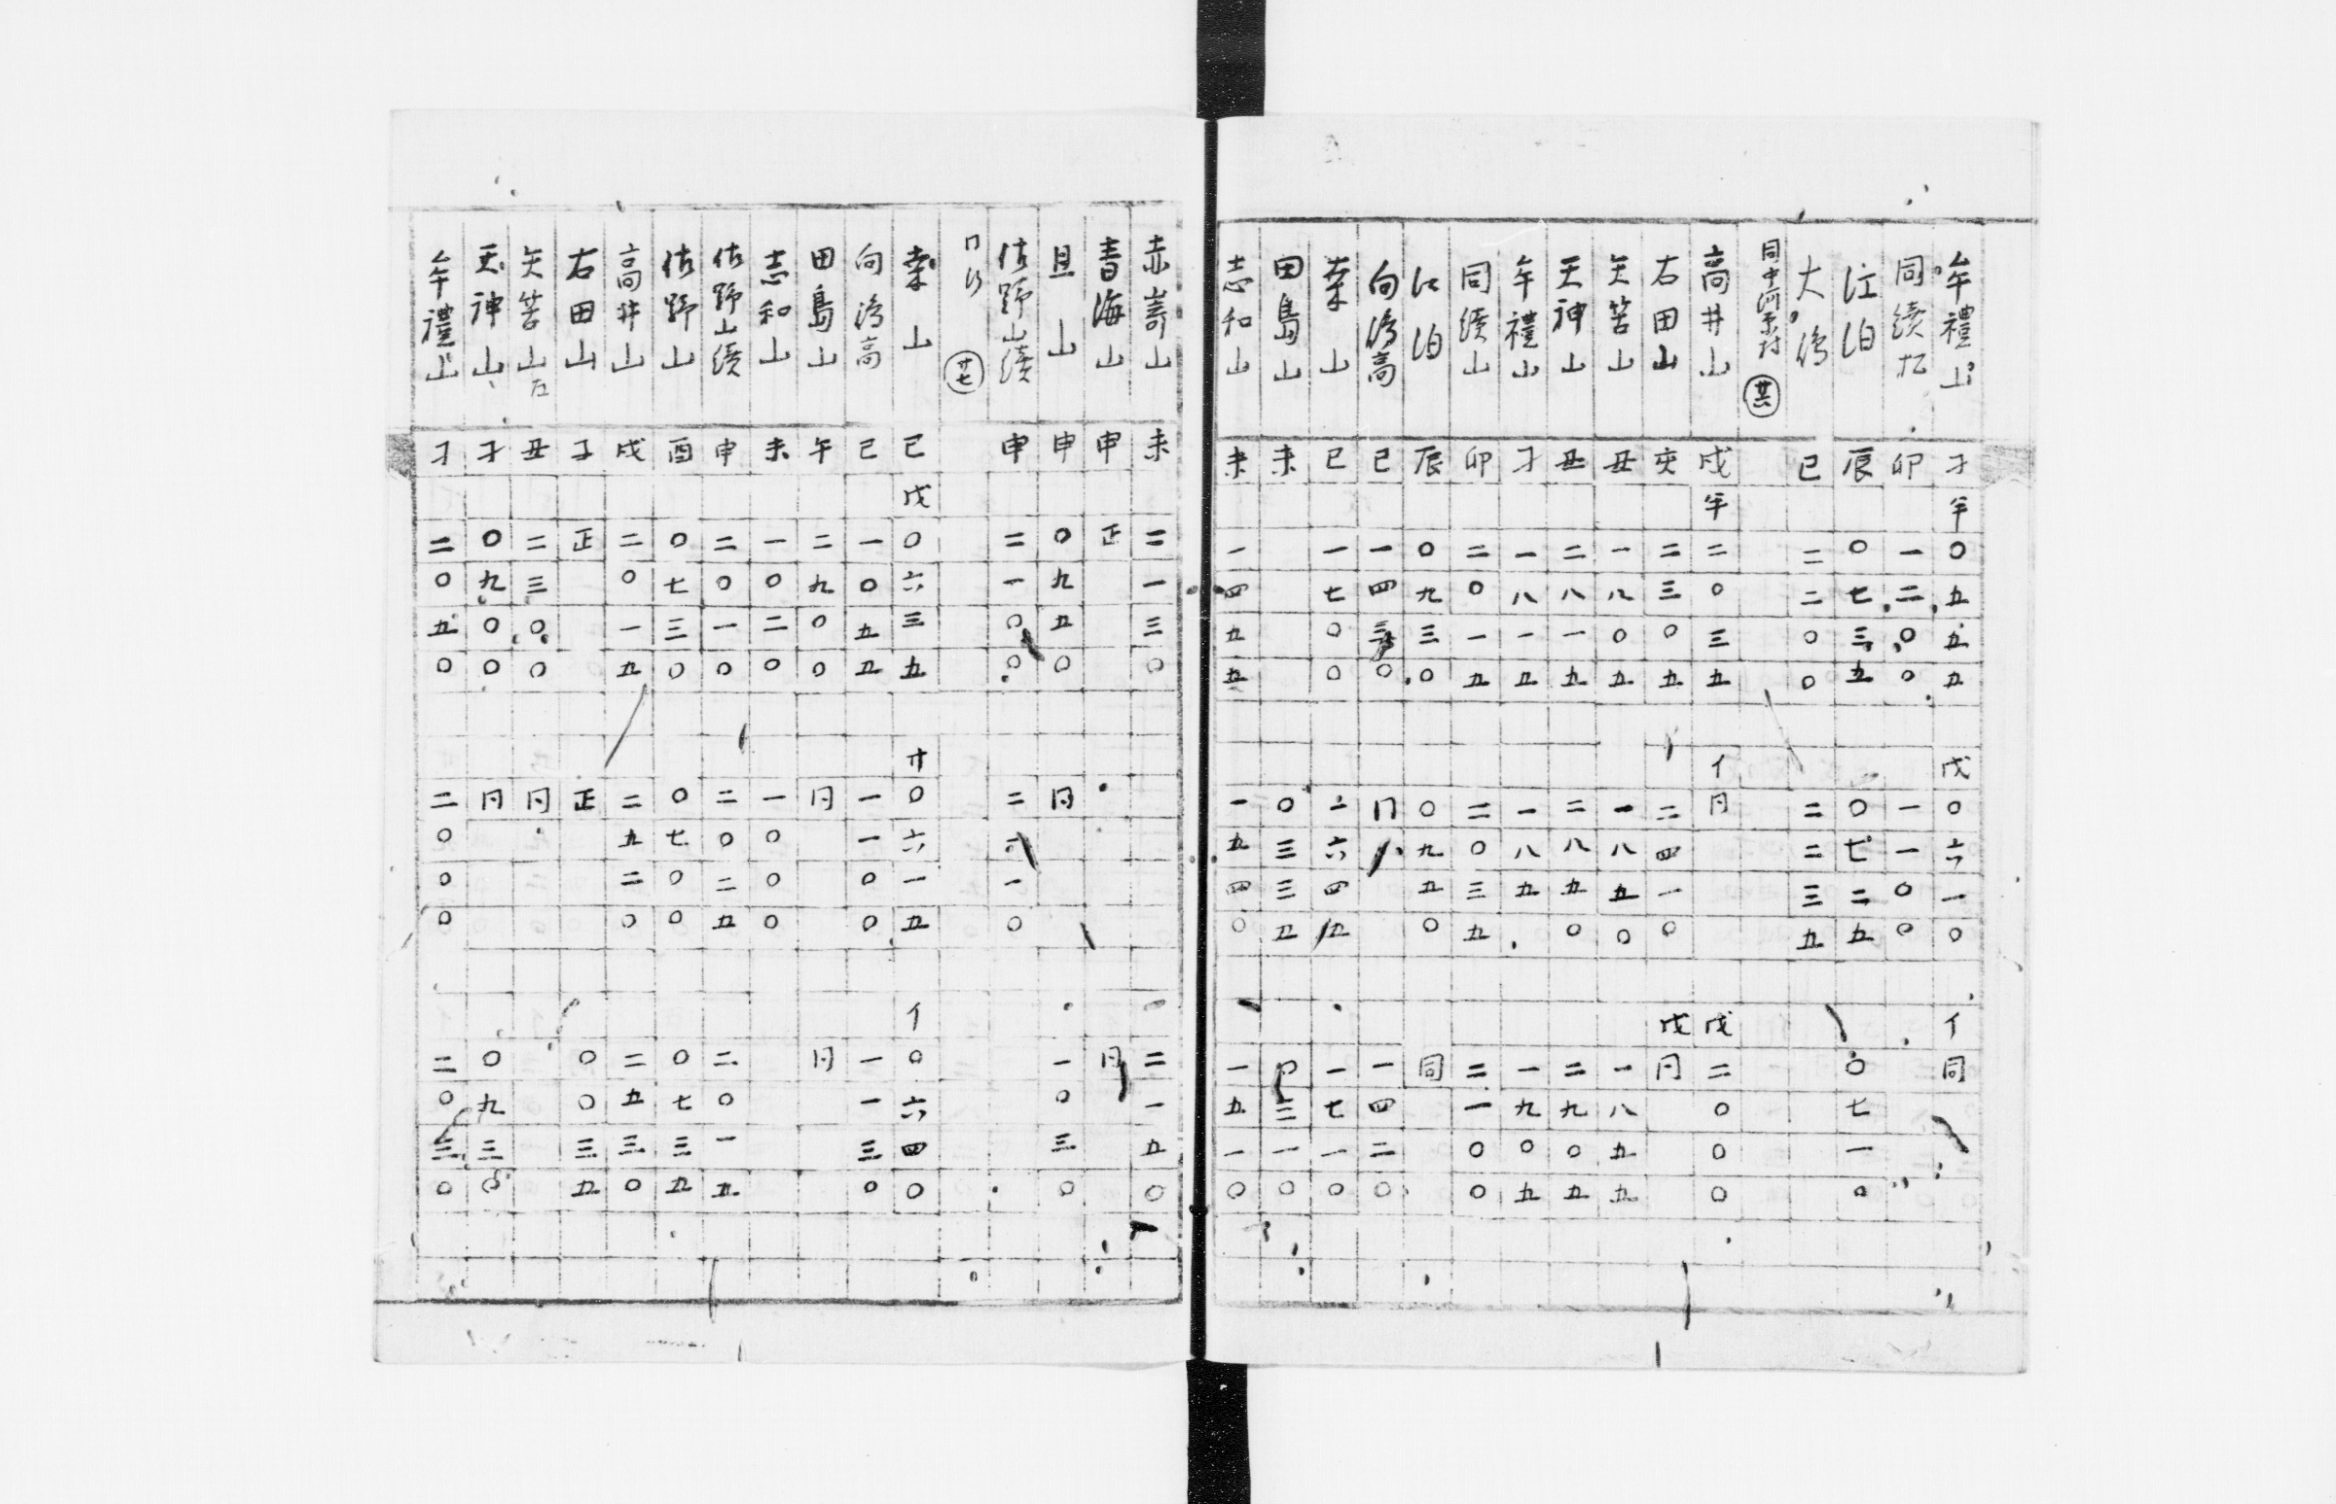 牟禮山 子 牟 〇五五五 戊 〇六一〇 亻 同
同續 卯 一二〇〇 一一〇〇
江泊 辰 〇七三五 〇七二五 〇七一〇
大 巳 二二〇〇 二二三五
同中河原村 共
高井山 戌 牟 二〇三五 亻 同 戊 二〇〇〇
右田山 亥 二三〇五 二四一〇 戊 同
矢筈山 丑 一八〇五 一八五〇 一八五五
天神山 丑 二八一五 二八五〇 二九〇五
牟禮山 子 一八一五 一八五 一九〇五
同續山 卯 二〇一五 二〇三五 二一〇〇
江泊 辰 〇九三〇 〇九五〇 同
向 高 巳 一四三〇 同 一四二〇
桑山 巳 一七〇〇 二六四五 一七一〇
田島山 未 〇三三五 同三一〇
志和山 未 一四五五 一五四〇 一五一〇
赤嵜山 未 二一三〇 二一五〇
青海山 申 正 同
且山 申 〇九五〇 同 一〇三〇
佐野山續 申 二一〇〇 二六一〇
同所 廿七
桑山 巳 戊 〇六三五 廾 〇六一五 亻 〇六四〇
向 高 巳 一〇五五 一一〇〇 一一三〇
田島山 午 二九〇〇 同 同
志和山 未 一〇二〇 一〇〇〇
佐野山續 申 二〇一〇 二〇二五 二〇一五
佐野山 酉 〇七三〇 〇七〇〇 〇七三五
高井山 戌 二〇一五 二五二〇 二五三〇
右田山 子 正 正 〇〇三五
矢筈山 左 丑 二三〇〇 同
天神山 子 〇九〇〇 同 〇九三〇
牟禮山 子 二〇五〇 二〇〇〇 二〇三〇